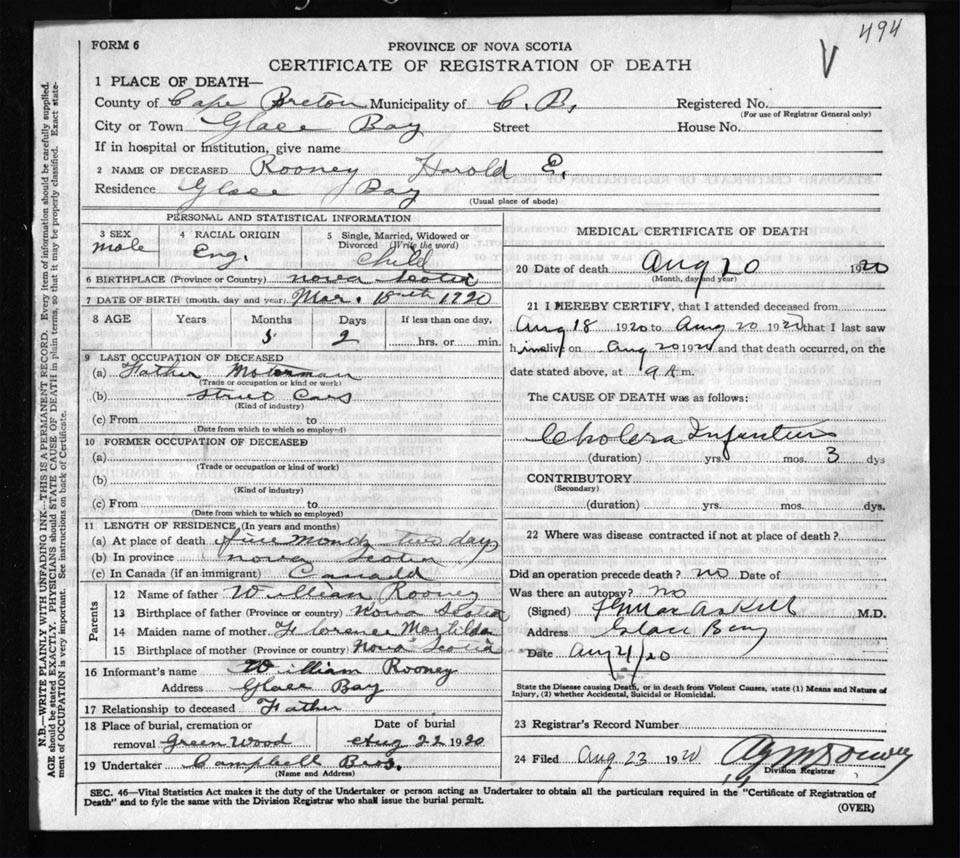 494
V
FORM 6
PROVINCE OF NOVA SCOTIA
CERTIFICATE OF REGISTRATION OF DEATH
1 PLACE OF DEATH—
County of Cape Breton Municipality of C. B. Registered No.
(For use of Registrar General only)
City or Town Glace Bay Street House No.
If in hospital or institution, give name
2 NAME OF DECEASED Rooney Harold E.
Residence Glace Bay
(Usual place of abode)
PERSONAL AND STATISTICAL INFORMATION
3 SEX 4 RACIAL ORIGIN 5 Single, Married, Widowed or Divorced (Write the word)
male Eng. Child
6 BIRTHPLACE (Province or Country) Nova Scotia
7 DATE OF BIRTH (month, day and year) Mar. 18th 1920
8 AGE Years Months Days If less than one day,
5 2 hrs. or min.
9 LAST OCCUPATION OF DECEASED
(a) Father Motorman
(Trade or occupation or kind or work)
(b) Street Cars
(Kind of industry)
(c) From to
(Date from which to which so employed)
10 FORMER OCCUPATION OF DECEASED
(a)
(Trade or occupation or kind of work)
(b)
(Kind of industry)
(c) From to
(Date from which to which so employed)
11 LENGTH OF RESIDENCE (In years and months)
(a) At place of death five months two days
(b) In province nova Scotia
(c) In Canada (if an immigrant) Canada
Parents
12 Name of father William Rooney
13 Birthplace of father (Province or country) Nova Scotia
14 Maiden name of mother Florence
15 Birthplace of mother (Province or country) Nova Scotia
16 Informant's name William Rooney
Address Glace Bay
17 Relationship to deceased Father
18 Place of burial, cremation or Date of burial
removal Green Wood Aug 22 1920
19 Undertaker Campbell Bros.
(Name and Address)
MEDICAL CERTIFICATE OF DEATH
20 Date of death Aug 20 1920
(Month, day and year)
21 I HEREBY CERTIFY, that I attended deceased from
Aug 18 1920 to Aug 20 1920 that I last saw
him alive on Aug 20 1920 and that death occurred, on the
date stated above, at 9 A.m.
The CAUSE OF DEATH was as follows:
Cholera Infantum
(duration) yrs. mos. 3 dys
CONTRIBUTORY
(Secondary)
(duration) yrs. mos. dys.
22 Where was disease contracted if not at place of death?
Did an operation precede death? no Date of
Was there an autopsy? no
(Signed) M.D.
Address Glace Bay
Date
State the Disease causing Death, or in death from Violent Causes, state (1) Means and Nature of
Injury, (2) whether Accidental, Suicidal or Homicidal.
23 Registrar's Record Number
24 Filed Aug 23 1920
Division Registrar
SEC. 46—Vital Statistics Act makes it the duty of the Undertaker or person acting as Undertaker to obtain all the particulars required in the "Certificate of Registration of
Death" and to fyle the same with the Division Registrar who shall issue the burial permit.
(OVER)
N.B.—WRITE PLAINLY WITH UNFADING INK—THIS IS A PERMANENT RECORD. Every item of information should be carefully supplied.
AGE should be stated EXACTLY. PHYSICIANS should STATE CAUSE OF DEATH in plain terms, so that it may be properly classified. Exact state-
ment of OCCUPATION is very important. See instructions on back of Certificate.